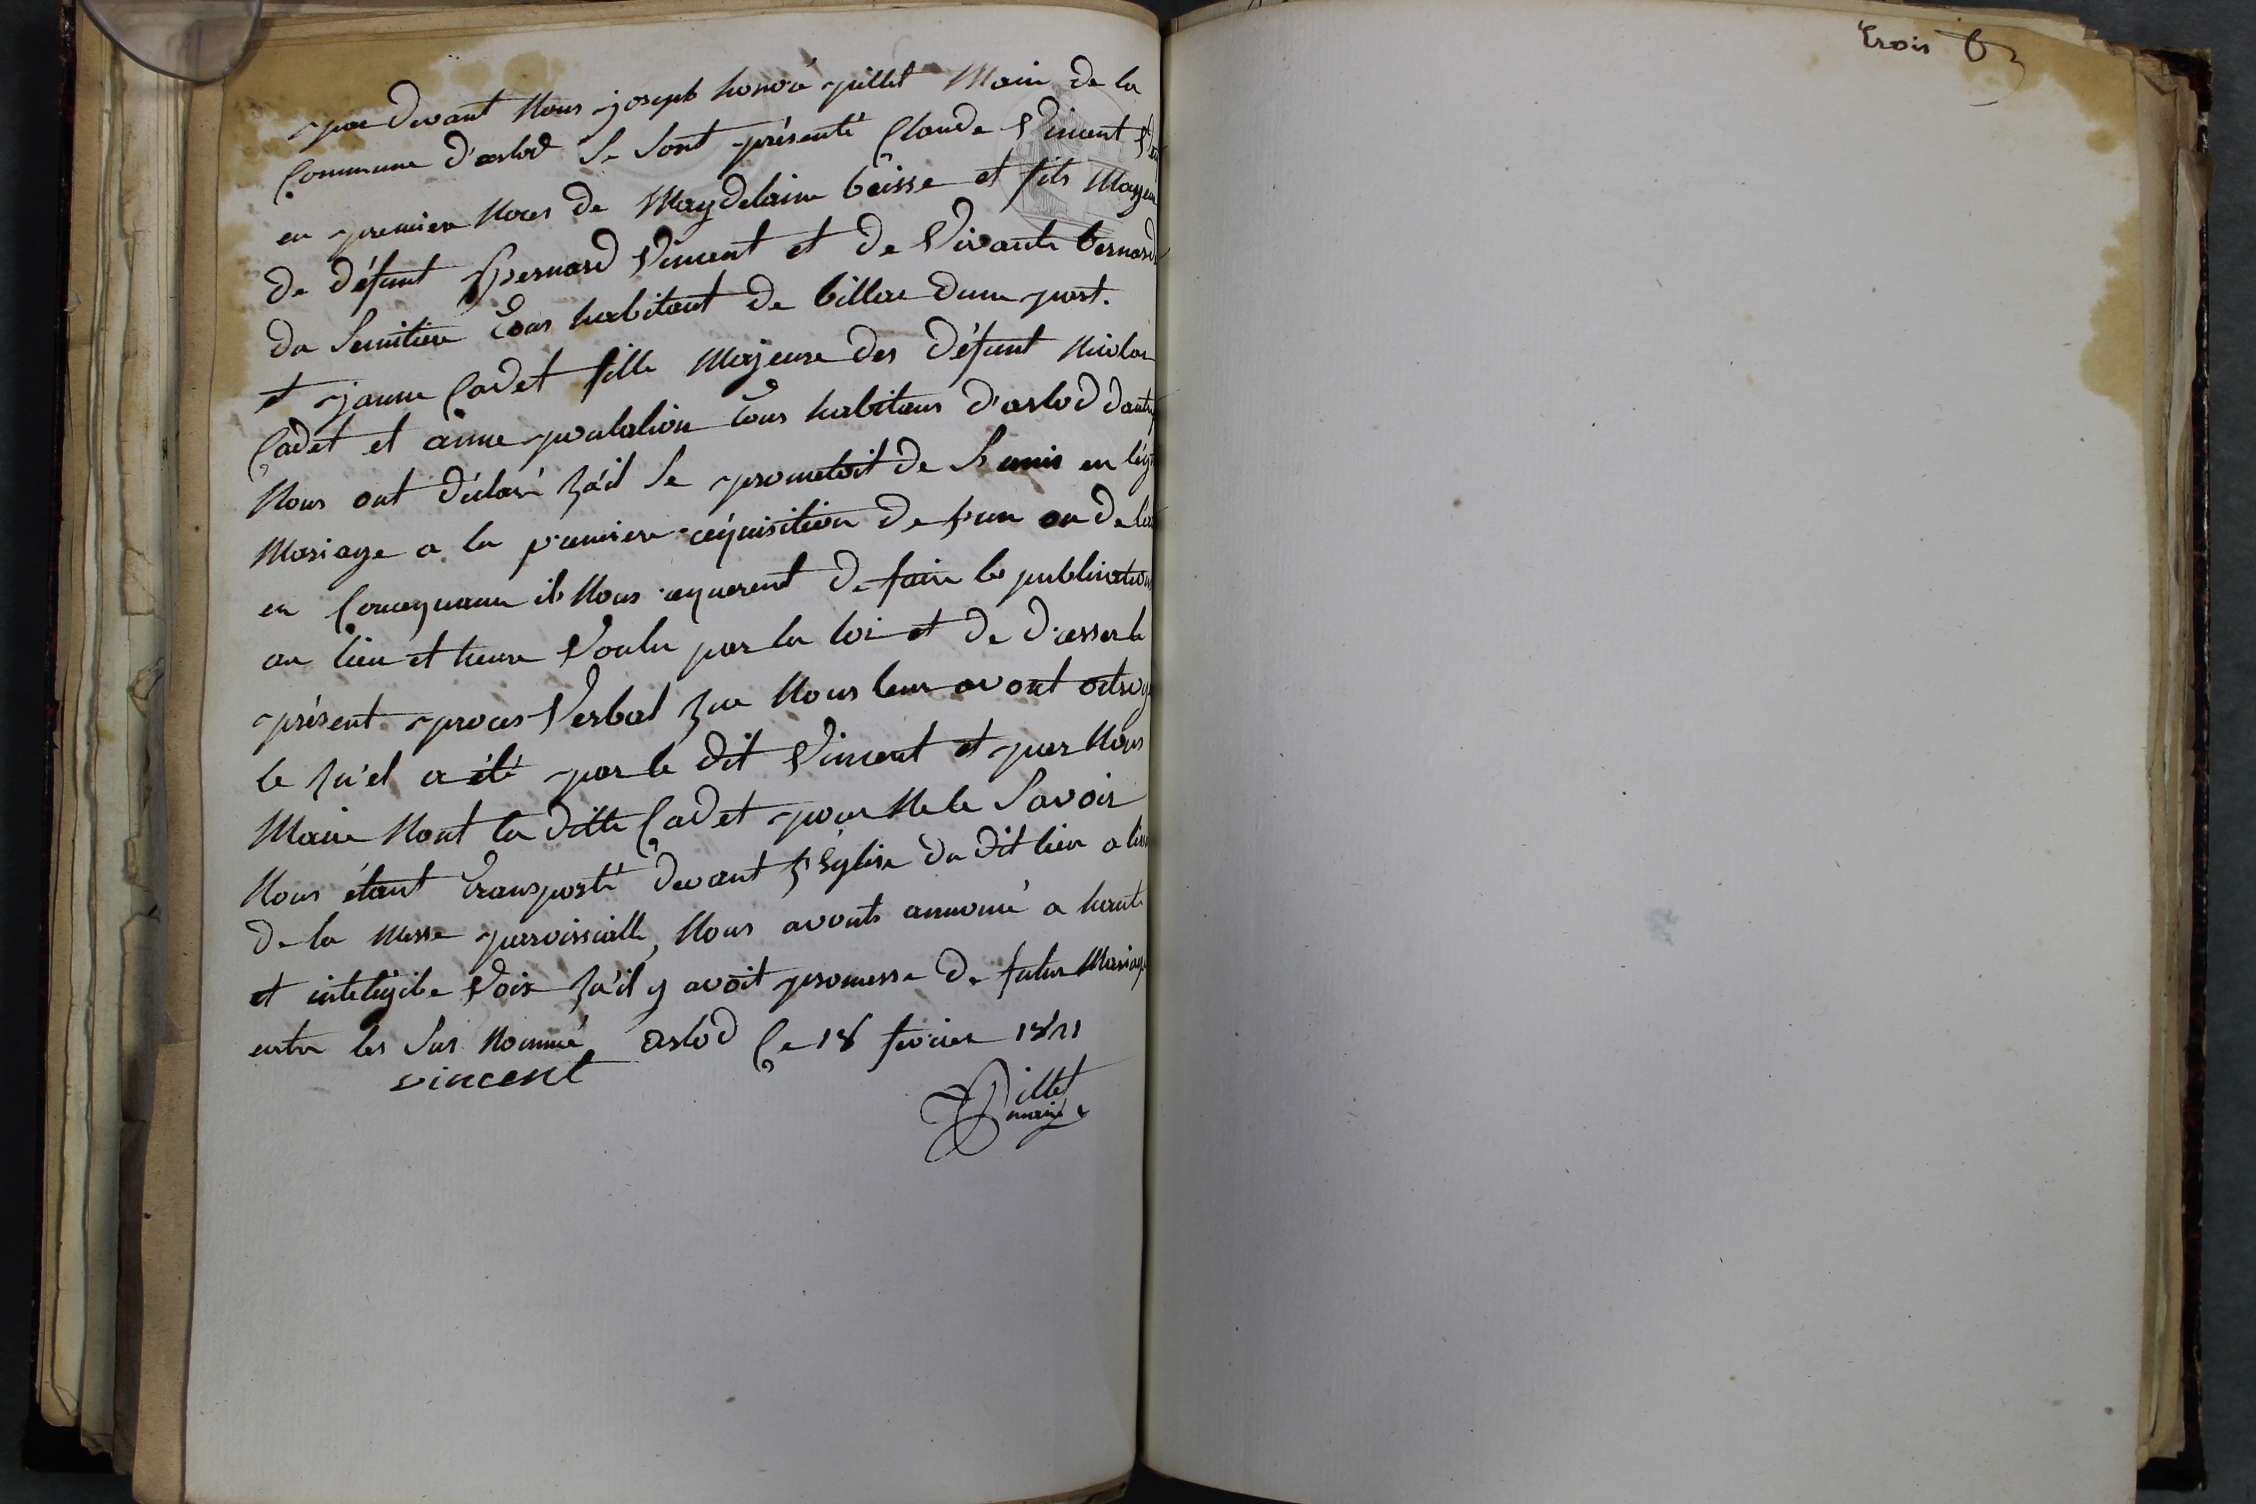 par devant Nous joseph honoré pillet Maire de la
Commune d'arlod Se Sont présenté Claude Vincent
en premiere Noces de Magdelaine beisse et fils Majeur
de défunt Bernard Vincent et de Vivante bernard
du Sentier tous habitant de billiat dune part.
et janne Cadet fille Majeure des défunt Nicolas
Cadet et anne tous habitans d'arlod dautre
Nous ont déclaré qu'il Se prometoit de S unir en
Mariage a la premiere réquisition de l'un ou de
en Consequance ils Nous requerent de faire les publications
au lieu et heure Voulu par la loi et de dresser le
présent proces Verbal que Nous leur avont octroyé
le qu'el a été par le dit Vincent et par Nous
Maire Nont la ditte Cadet pour Ne le Savoir
Nous étant transporté devant l'église du dit lieu a
de la Messe paroissialle, Nous avonts annoncé a haute
et inteligible Voix qu'il y avoit promesse de futur Mariage
entre les Sus Nommé arlod Ce 18 fevrier 1821
vincent
Pillet
maire
trois